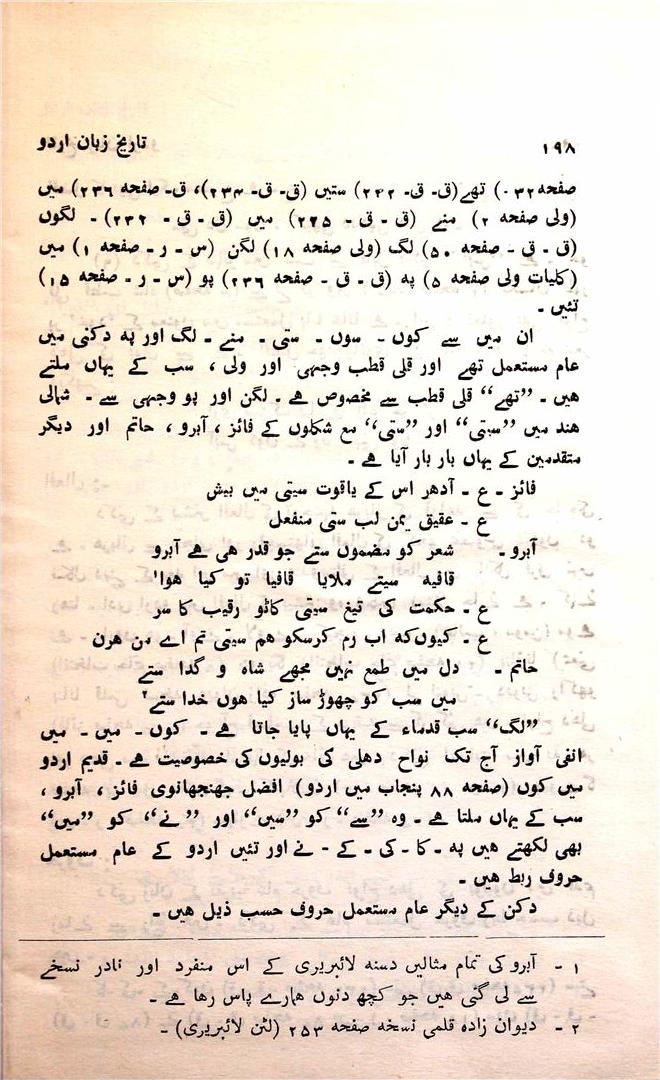 ۱۹۸ تاریخ زبان اردو
صفحہ ۳۲۰) تھے (ق۔ ق۔ ۲۴۲) ستیں (ق۔ ق۔ ۲۳۴)، ق۔ صفحہ ۲۳۶) میں
(ولی صفحہ ۲) منے (ق ۔ ق ۔ ۲۲۵) میں (ق ۔ ق ۔ ۲۳۲) ۔ لگوں
(ق ۔ ق ۔ صفحہ ۵۰) لگ (ولی صفحہ ۱۸) لگن (س ۔ ر ۔ صفحہ ۱) میں
(کلیات ولی صفحہ ۵) پہ (ق ۔ ق ۔ صفحہ ۲۳۶) پو (س ۔ ر ۔ صفحہ ۱۵)
تئیں ۔
ان میں سے کوں ۔ سوں ۔ ستی ۔ منے ۔ لگ اور پہ دکنی میں
عام مستعمل تھے اور قلی قطب وجہی اور ولی ، سب کے یہاں ملتے
ہیں ۔ ”تھے“ قلی قطب سے مخصوص ہے ۔ لگن اور پو وجہی سے ۔ شمالی
ہند میں ”سیتی“ اور ”ستی“ مع شکلوں کے فائز ، آبرو ، حاتم اور دیگر
متقدمین کے یہاں بار بار آیا ہے ۔
فائز ۔ ع ۔ آدھر اس کے یاقوت سیتی میں بیش
ع ۔ عقیق یمن لب ستی منفعل
آبرو ۔ شعر کو مضموں ستے جو قدر ہی ہے آبرو
قافیہ سیتے ملایا قافیا تو کیا ہوا۱
ع ۔ حکمت کی تیغ سیتی کاٹو رقیب کا سر
ع ۔ کیوں کہ اب رم کر سکو ہم سیتی تم اے من ہرن
حاتم ۔ دل میں طمع نہیں مجھے شاہ و گدا ستے
میں سب کو چھوڑ ساز کیا ہوں خدا ستے۲
”لگ“ سب قدماء کے یہاں پایا جاتا ہے ۔ کوں ۔ میں ۔ میں
انفی آواز آج تک نواح دہلی کی بولیوں کی خصوصیت ہے ۔ قدیم اردو
میں کوں (صفحہ ۸۸ پنجاب میں اردو) افضل جھنجھانوی فائز ، آبرو ،
سب کے یہاں ملتا ہے ۔ وہ ”سے“ کو ”سیں“ اور ”نے“، کو ”میں“
بھی لکھتے ہیں پہ ۔ کا ۔ کی ۔ کے ۔ نے اور تئیں اردو کے عام مستعمل
حروف ربط ہیں ۔
دکن کے دیگر عام مستعمل حروف حسب ذیل ہیں ۔
۱ ۔ آبرو کی تمام مثالیں دسنہ لائبریری کے اس منفرد اور نادر نسخے
سے لی گئی ہیں جو کچھ دنوں ہمارے پاس رہا ہے ۔
۲ ۔ دیوان زادہ قلمی نسخہ صفحہ ۲۵۳ (لٹن لائبریری) ۔